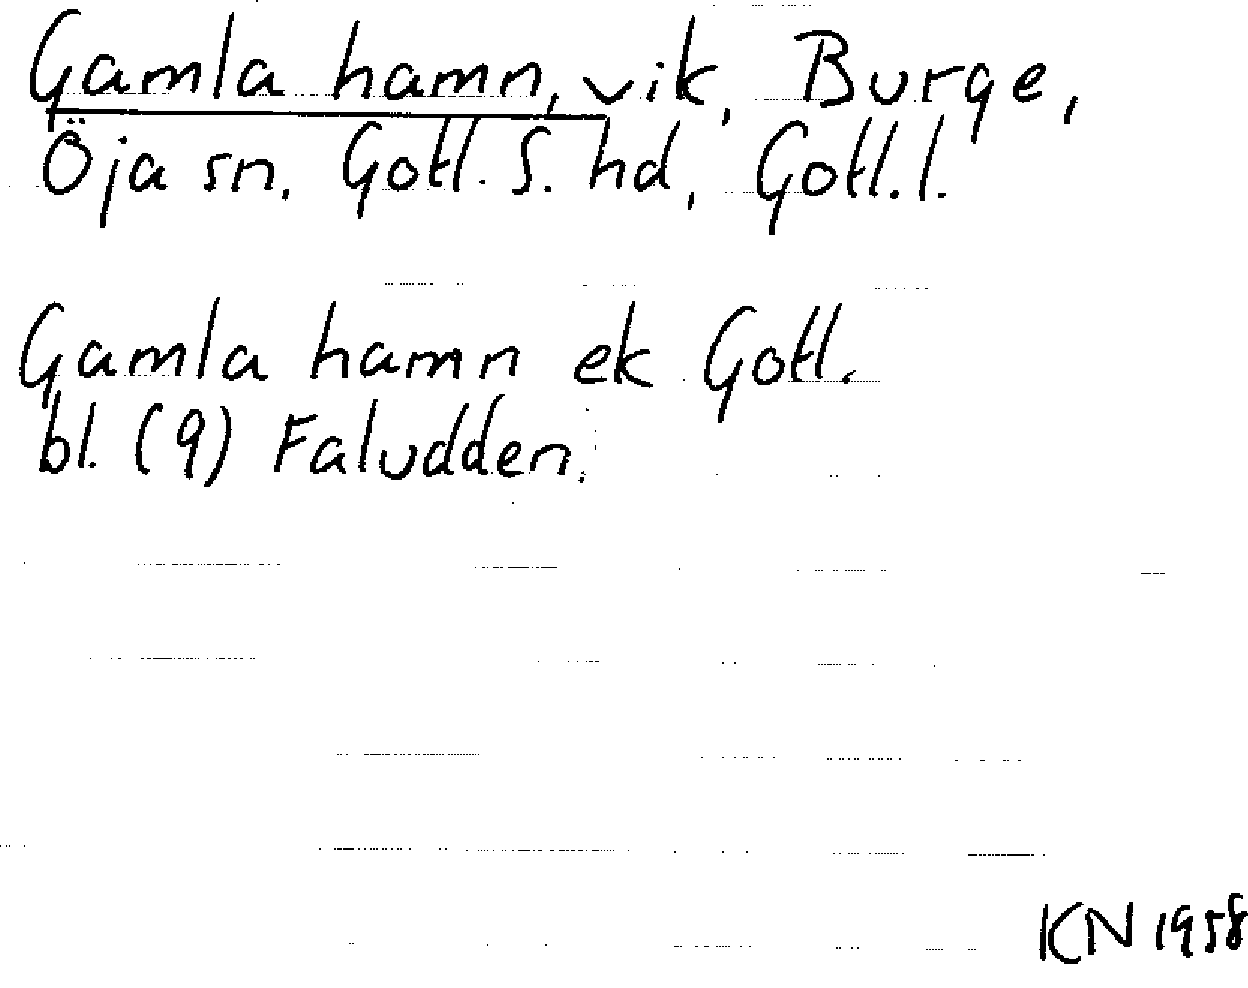 Gamla hamn, vik, Burge,
Öja sn, Gotl. S. hd, Gotl. l.
Gamla hamn ek Gotl.
bl. (9) Faludden.
KN 1958